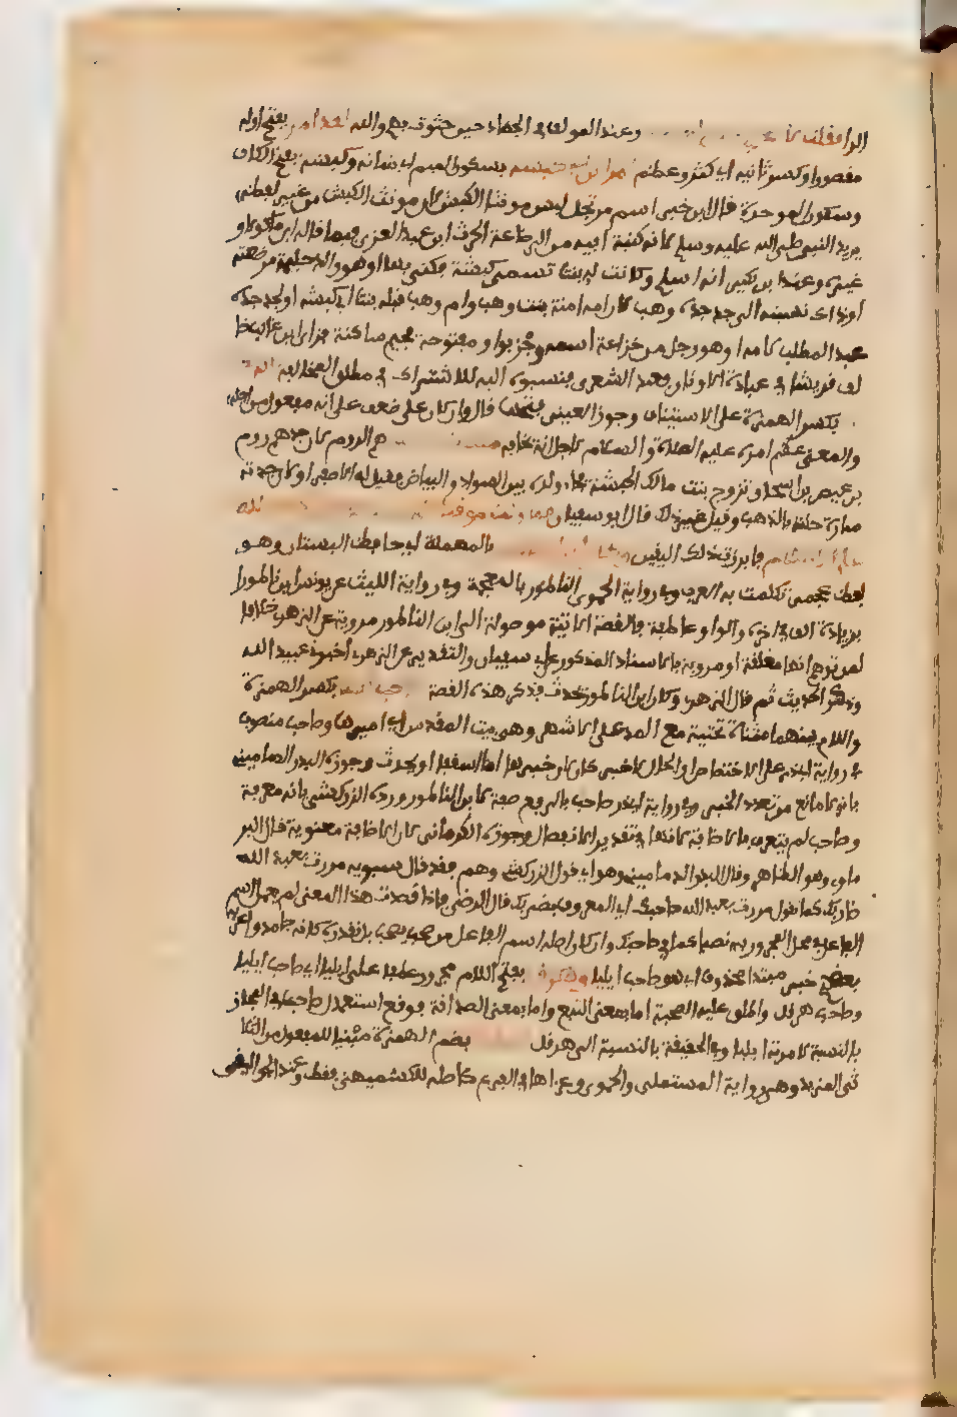 وعند المولف في الجهاد حين خرجت به والله لقد امر بفتح اوله
مقصورا وكسر ثانيه اي كثر وعظم امر ابن ابي كبشة بسكون الميم اي شانه وكبشة بفتح الكاف
وسكون الموحدة قال ابن جني اسم مرتجل ليس مونث الكبش لان مونث الكبش من غير لفظه
يريد النبي صلى الله عليه وسلم لانه كنية ابيه من الرضاعة الحرث ابن عبد العزى فيما قاله ابن ماكولا و
غيره وعند ابن بكير انه اسلم وكانت له بنتا تسمى كبشة فكني بها او هو والد حليمة مرضعته
او ذاك نسبة الى جد جده وهب لان امه امنة بنت وهب وام وهب قيلة بنت ابي كبشة او لجد جده
عبد المطلب لامه او هو رجل من خزاعة اسمه وجز بواو مفتوحة فجيم ساكنة فزاي ابن غالب خا
لف قريشا في عبادة الاوثان فعبد الشعرى فنسبوه اليه للاشتراك في مطلق المخالفة انه
بكسر الهمزة على الاستيناف وجوز العيني فتحها قال وان كان على ضعف على انه مفعول من اجله
والمعنى عظم امره عليه الصلاة والسلام لاجل انه يخافه هم الروم كان جدهم روم
بن عيص بن اسحاق تزوج بنت مالك الحبشة فجاء ولده بين السواد والبياض فقيل له الاصفر او لان جدته
سارة حلته بالذهب وقيل غير ذلك قال ابو سفيان فما زلت موقنا
فابرزت ذلك اليقين بالمهملة اي حافظ البستان وهو
لفظ عجمي تكلمت به العرب وفي رواية الحموي الناظور بالمعجمة وفي رواية الليث عن يونس ابن ناطورا
بزيادة الف في اخره والواو عاطفة فالقصة الاتية موصولة الى ابن الناطور مروية عن الزهري خلافا
لمن توهم انها معلقة او مروية بالاسناد المذكور عن ابي سفيان والتقدير عن الزهري اخبرني عبيد الله
وذكر الحديث ثم قال الزهري وكان ابن الناطور يحدث فذكر هذه القصة بكسر الهمزة
واللام بينهما مثناة تحتية مع المد على الاشهر وهي بيت المقدس اي اميرها وصاحب منصوب
في رواية ابي ذر على الاختصاص او الحال لا خبر كان لان خبرها اما اسقفا او يحدث وجوزه البدر الدماميني
بانه لا مانع من تعدد الخبر وفي رواية لغير ابي ذر صاحب بالرفع صفة لابن الناطور ورده الزركشي بانه معرفة
وصاحب لم يتعرف بالاضافة لانها في تقدير الانفصال وجوزه الكرماني لان الاضافة معنوية قال البر
ماوي وهو الظاهر وقال البدر الدماميني وهو اي قول الزركشي وهم فقد قال سيبويه مررت بعبد الله
ضاربك كما تقول مررت بعبد الله صاحبك اي المعروف بضربك قال الرضي فاذا قصدت هذا المعنى لم يعمل اسم
الفاعل في محل المجرور به نصبا كما في صاحبك وان كان اصله اسم الفاعل من صحب يصحب بل نقدره كانه جامد واعربه
بعضهم خبر مبتدا محذوف اي هو صاحب ايليا وهرقل بفتح اللام مجرور عطفا على ايليا اي صاحب ايليا
وصاحب هرقل واطلق عليه الصحبة اما بمعنى التبع واما بمعنى الصداقة فوقع استعمال صاحب في المجاز
بالنسبة لامرة ايليا وفي الحقيقة بالنسبة الى هرقل بضم الهمزة مبنيا للمفعول من الثلا
ثي المزيد وهي رواية المستملي والحموي وعزاها في الفرع كاصله للكشميهني فقط وعند